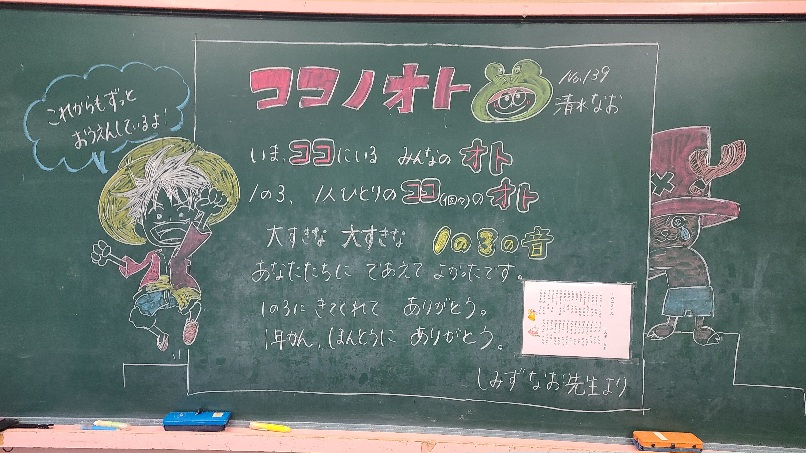 これからもずっと
おうえんしているよ!
ココノオト
No.139
清水なお
いま、ココにいる みんなの オト
1の3、1人ひとりのココ(個々)のオト
大すきな 大すきな 1の3の音
あなたたちに であえて よかったです。
1の3に きてくれて ありがとう。
1年かん、ほんとうに ありがとう。
しみず なお先生より